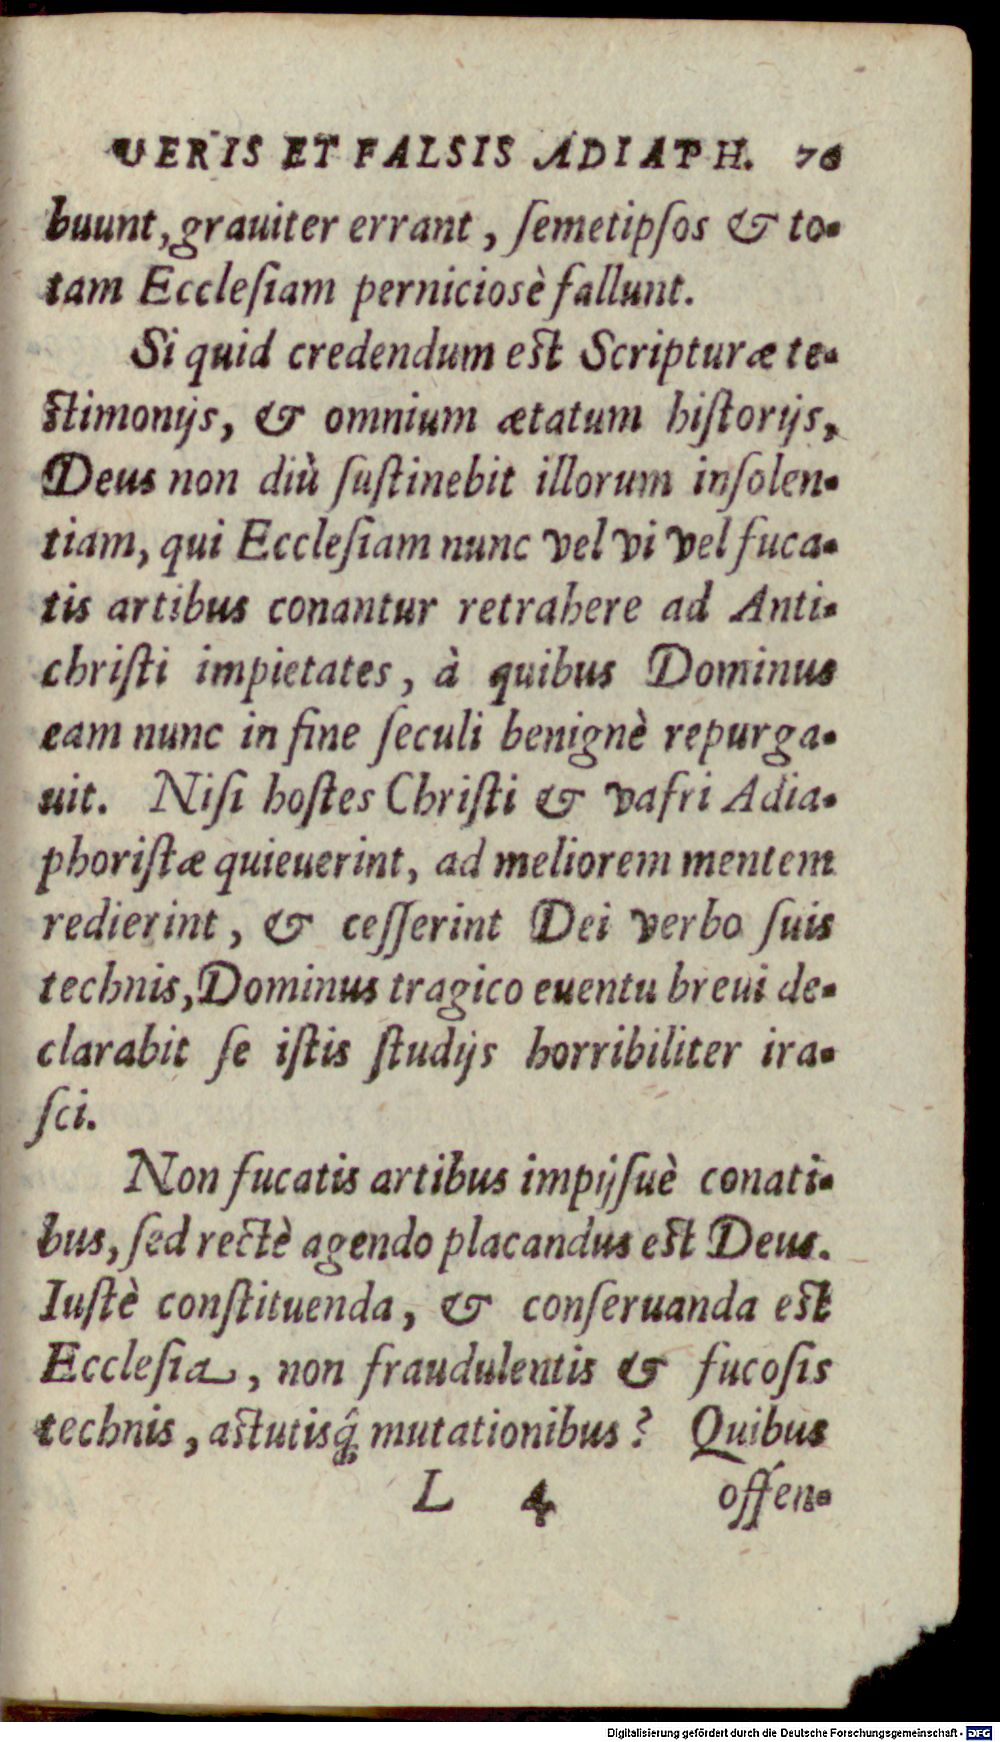 VERIS ET FALSIS ADIAPH. 76
buunt, grauiter errant, ſemetipſos & to-
tam Eccleſiam perniciosè fallunt.
Si quid credendum eſt Scripturæ te-
ſtimonijs, & omnium ætatum hiſtorijs,
Deus non diù ſuſtinebit illorum inſolen-
tiam, qui Eccleſiam nunc vel vi vel fuca-
tis artibus conantur retrahere ad Anti-
chriſti impietates, à quibus Dominus
eam nunc in fine ſeculi benignè repurga-
uit. Niſi hoſtes Chriſti & vafri Adia-
phoriſtæ quieuerint, ad meliorem mentem
redierint, & ceſſerint Dei verbo ſuis
technis, Dominus tragico euentu breui de-
clarabit ſe iſtis ſtudijs horribiliter ira-
ſci.
Non fucatis artibus impijſuè conati-
bus, ſed rectè agendo placandus eſt Deus.
Iuſtè conſtituenda, & conſeruanda eſt
Eccleſia, non fraudulentis & fucoſis
technis, aſtutisq́; mutationibus? Quibus
L 4 offen-
Digitalisierung gefördert durch die Deutsche Forschungsgemeinschaft - DFG